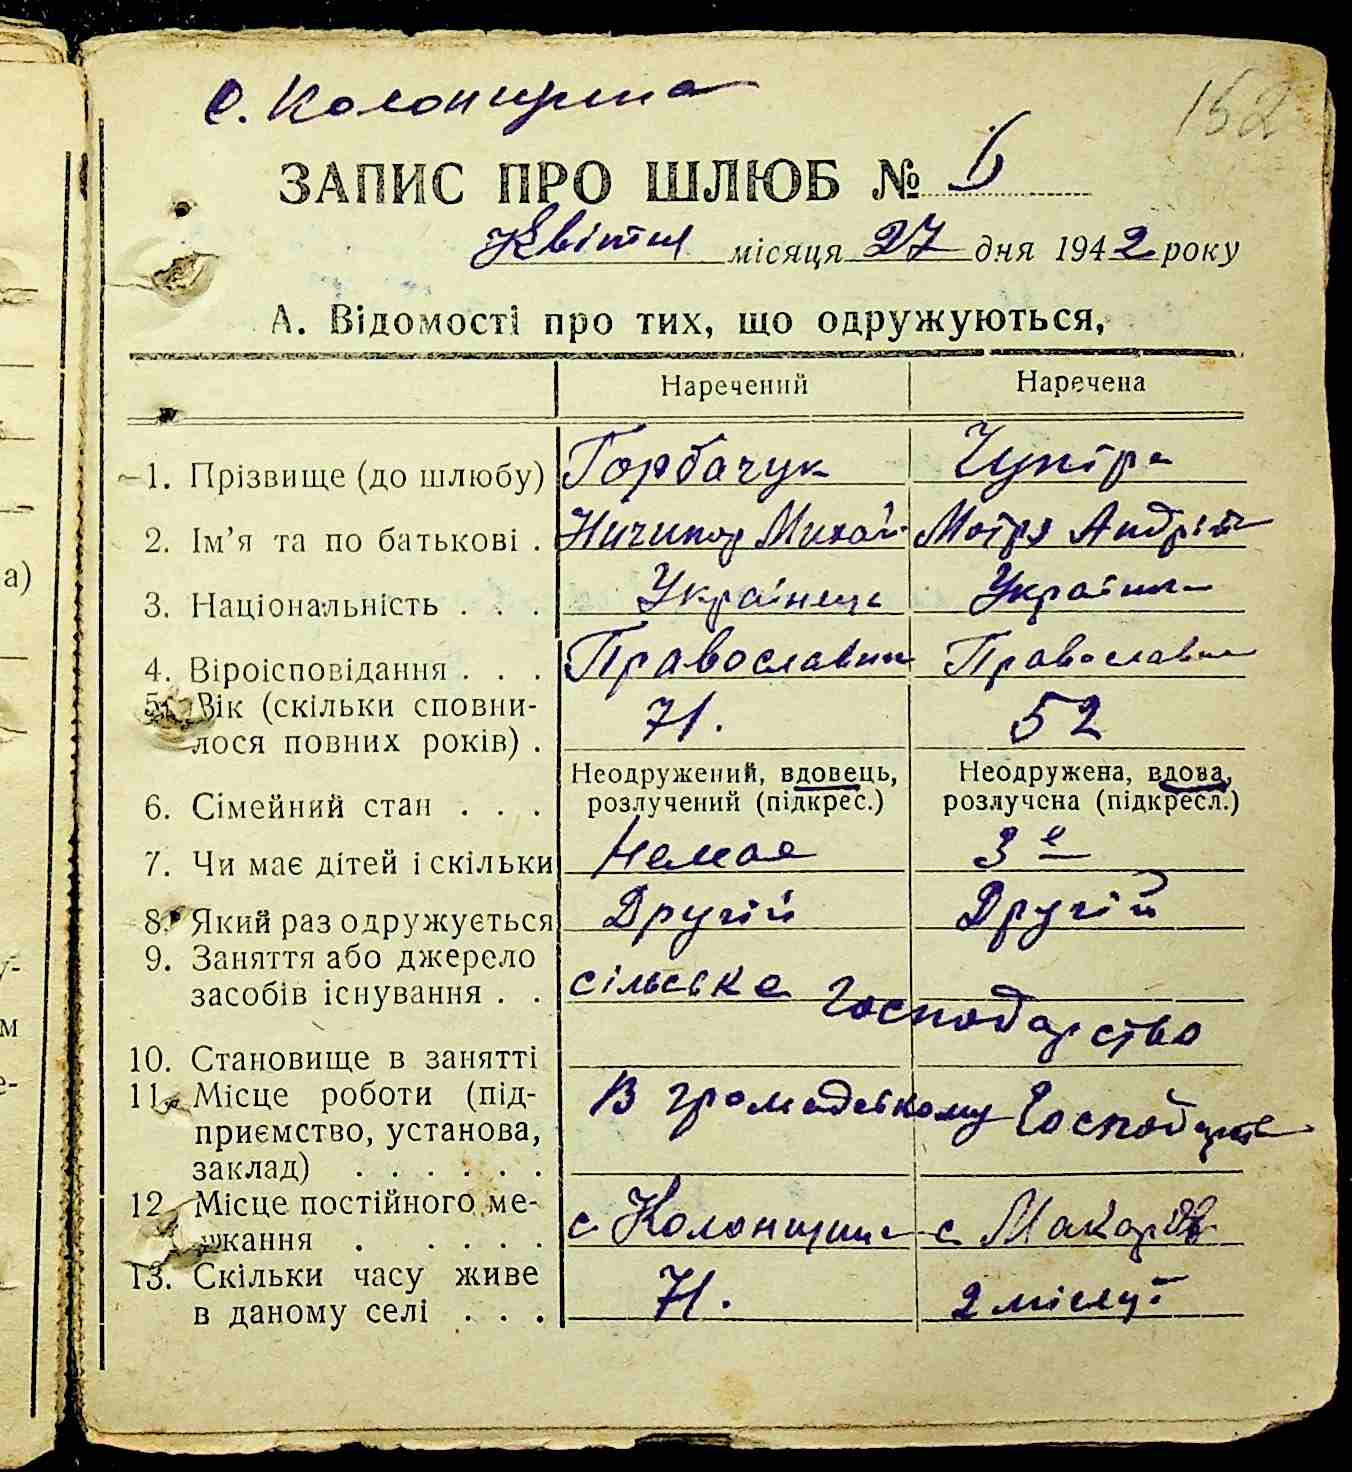 с. Колонщина
152
ЗАПИС ПРО ШЛЮБ № 6
Квітня місяця 27 дня 1942 року
А. Відомості про тих, що одружуються,
Наречений Наречена
1. Прізвище (до шлюбу) Горбачук Чупіра
2. Ім'я та по батькові . Ничипор Михай Мотря Андріїв
3. Національність . . . Українець Українка
4. Віроісповідання . . . Православний Православна
5. Вік (скільки сповни-
лося повних років) . 71. 52
Неодружений, вдовець, Неодружена, вдова,
6. Сімейний стан . . . розлучений (підкрес.) розлучена (підкресл.)
7. Чи має дітей і скільки Немає 3е
8. Який раз одружується Другій Другій
9. Заняття або джерело
засобів існування . . сільське господарство
10. Становище в занятті
11. Місце роботи (під- В громадському господарстві
приємство, установа,
заклад) . . . . . .
12. Місце постійного ме-
шкання . . . . . с Колонщина с Макарів
13. Скільки часу живе
в даному селі . . . 71. 2 місяці
а)
у-
м
е-